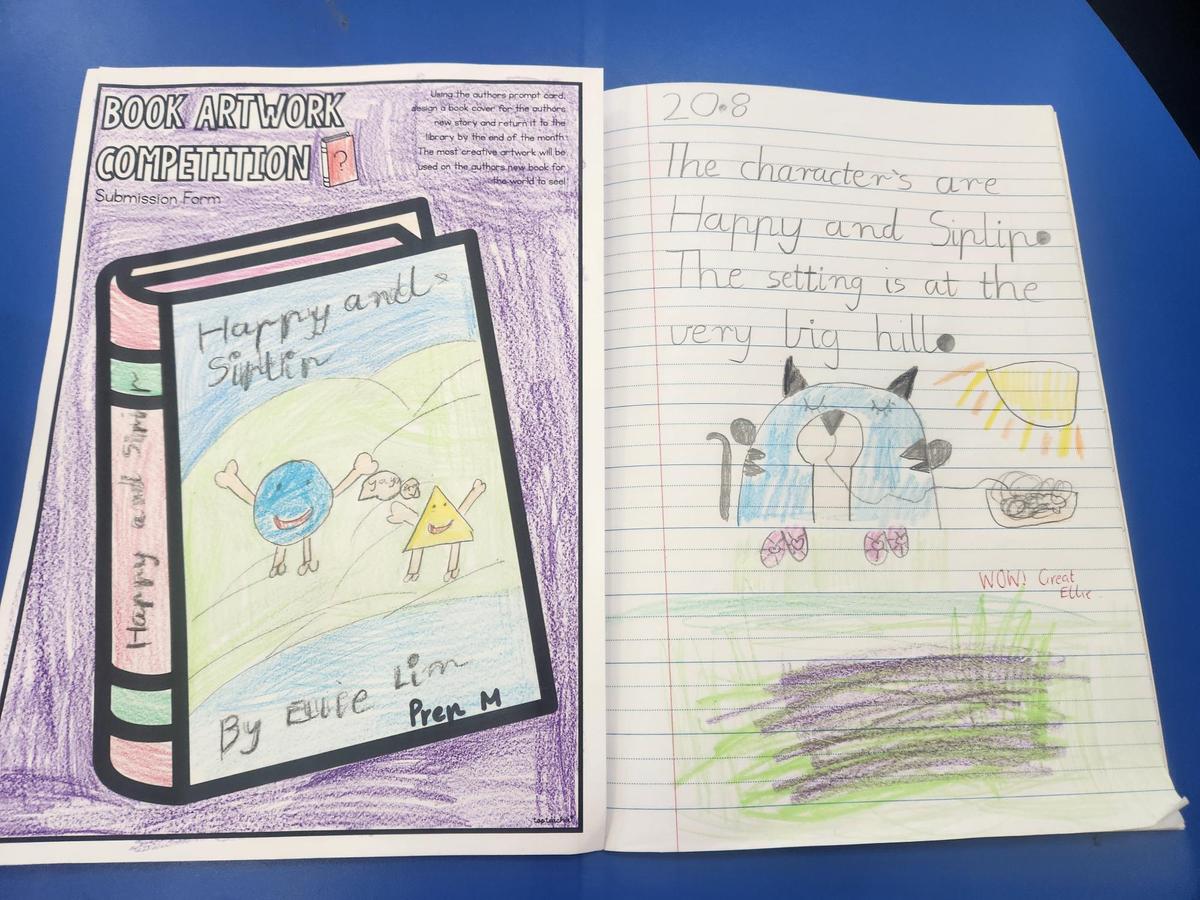 BOOK ARTWORK
COMPETITION
?
Submission Form
Using the authors prompt card,
design a book cover for the authors
new story and return it to the
library by the end of the month.
The most creative artwork will be
used on the authors new book for
the world to see!
Happy and
Siplip
Happy and Siplip
By Ellie Lim
Prep M
20.8
The character's are
Happy and Siplip.
The setting is at the
very big hill.
WOW! Great
Ellie